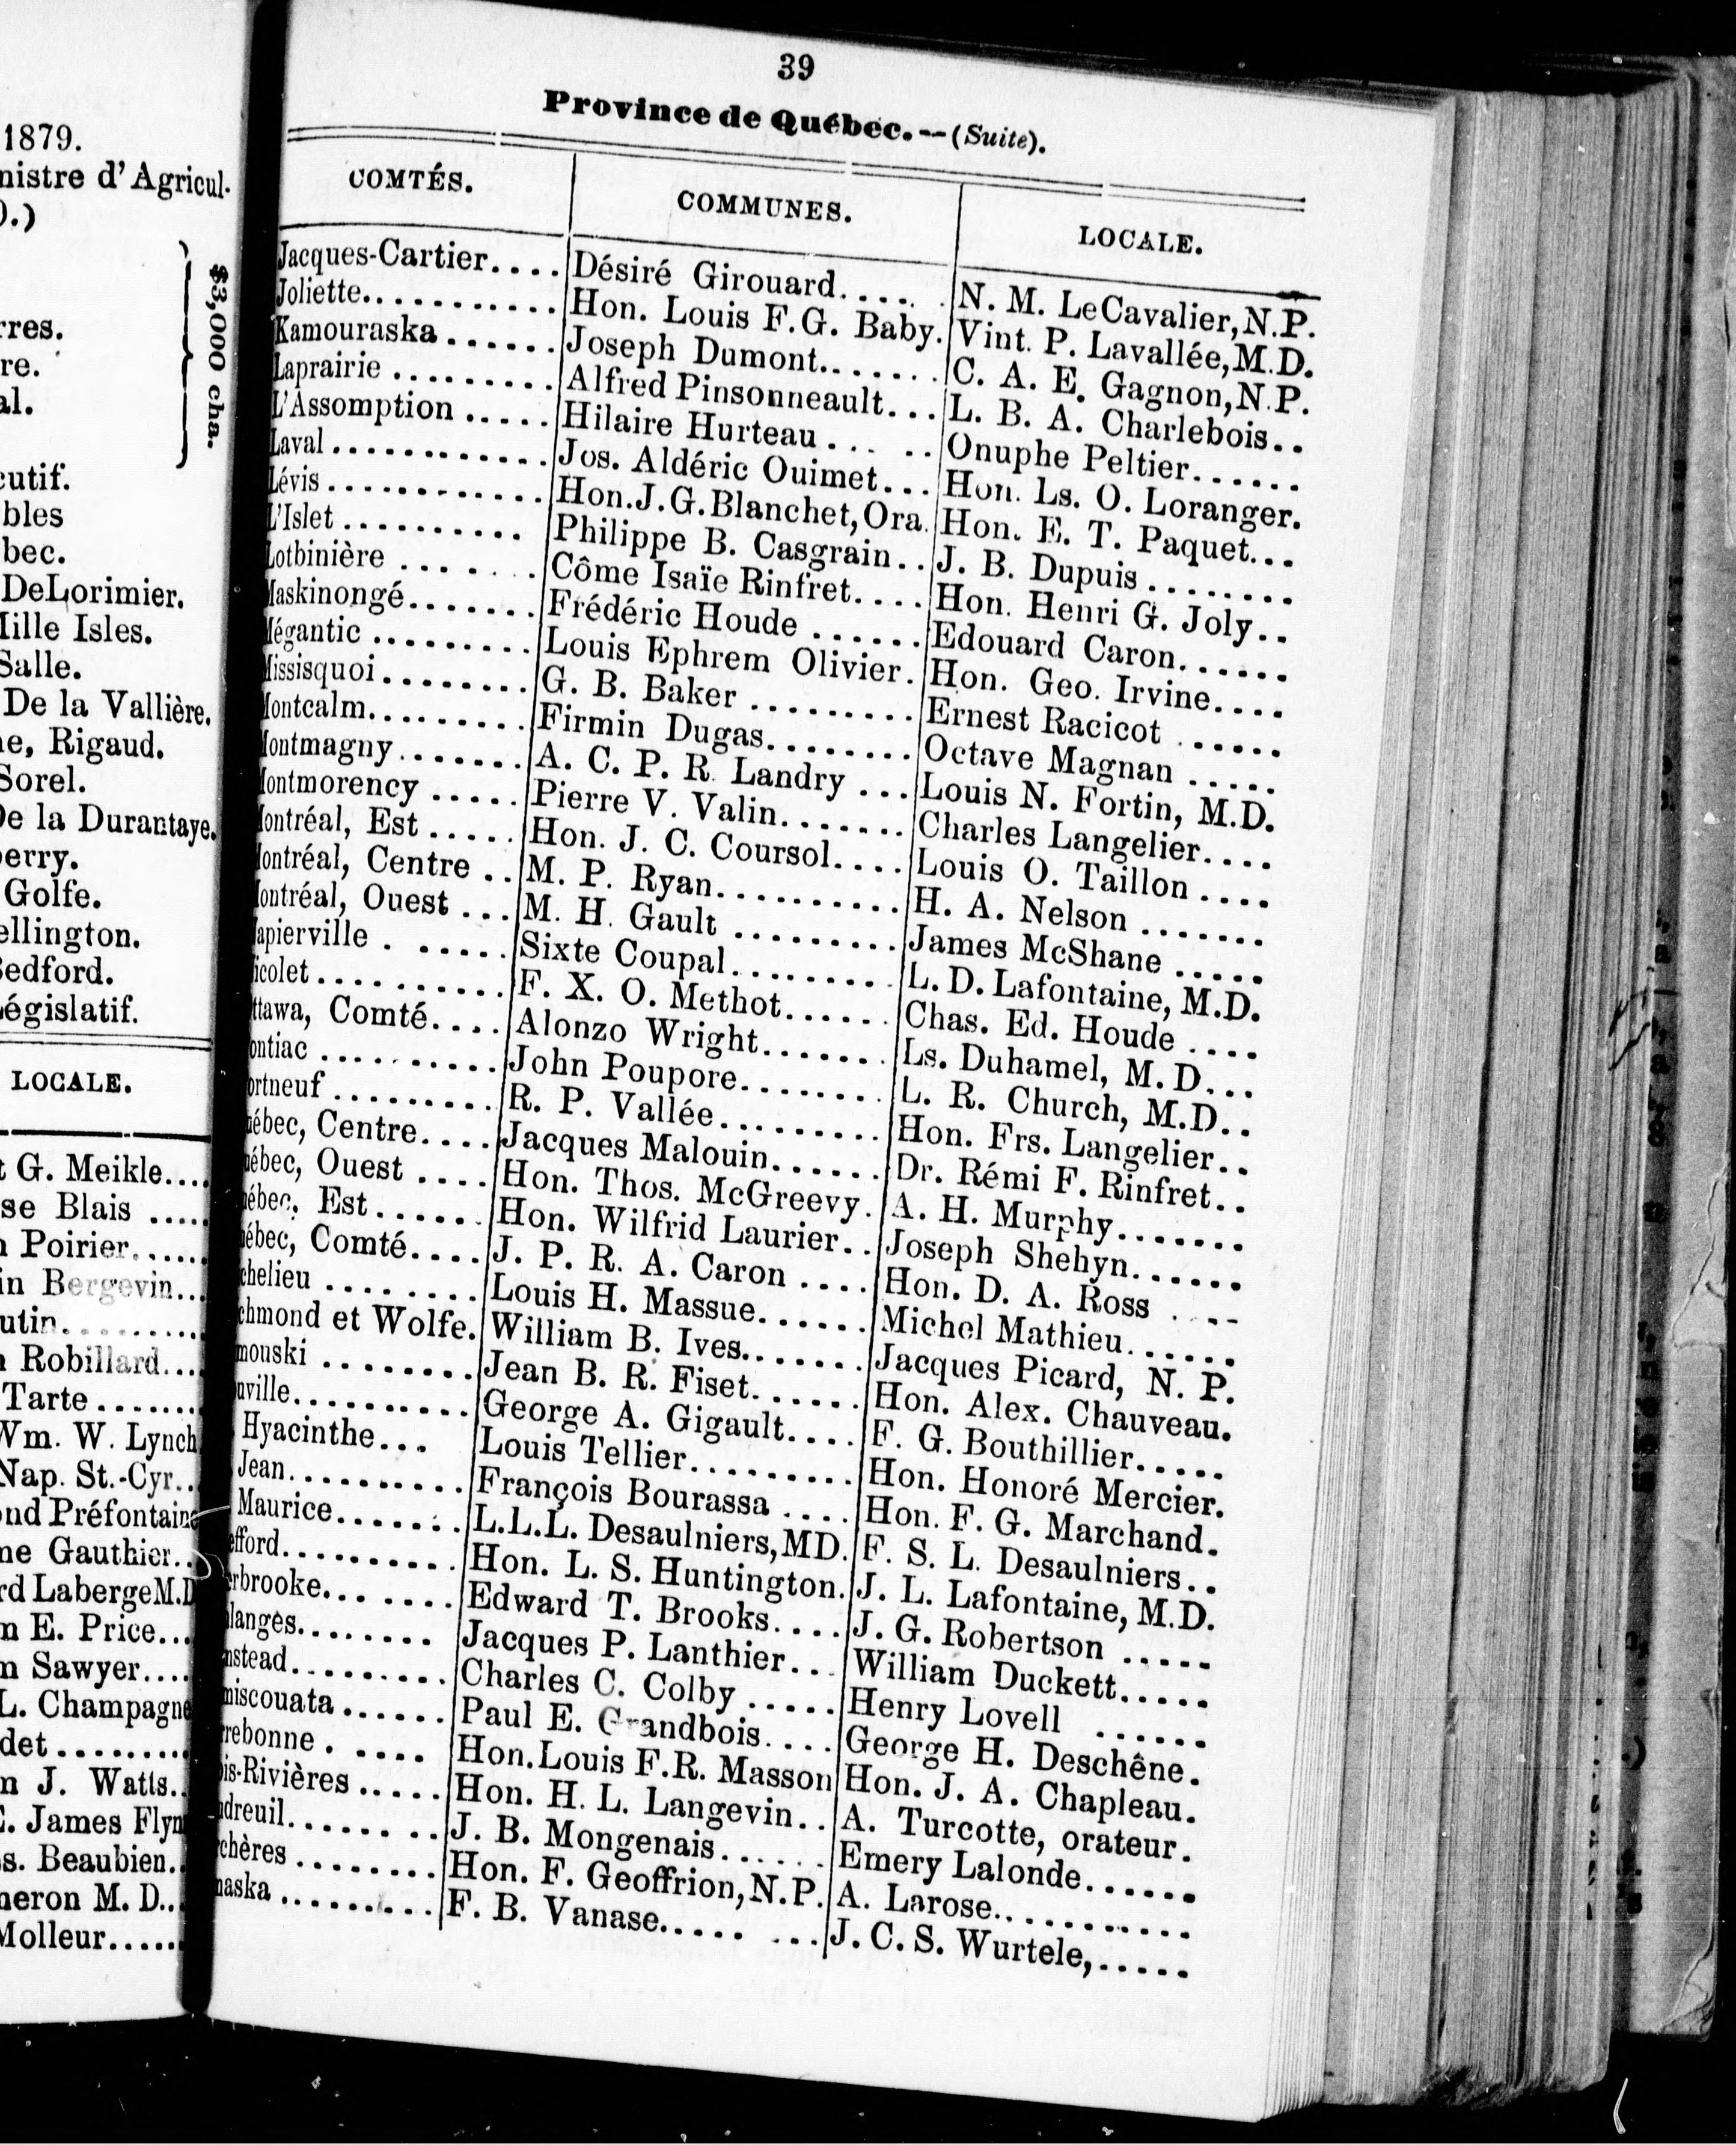 1879.
nistre d'Agricul-
).)
rres.
re.
al.
$3,000 cha.
cutif.
bles
bec.
DeLorimier.
Mille Isles.
Salle.
De la Vallière.
ne, Rigaud.
Sorel.
De la Durantaye.
berry.
Golfe.
ellington.
Bedford.
Législatif.
LOCALE.
t G. Meikle....
se Blais .....
n Poirier......
in Bergevin...
utin..........
n Robillard....
Tarte.......
Wm. W. Lynch
Nap. St.-Cyr..
ond Préfontaine
ne Gauthier..
rd Laberge M.D
m E. Price...
m Sawyer....
L. Champagne
det.........
m J. Watts..
E. James Flyn
s. Beaubien..
neron M. D...
Molleur......
39
Province de Québec.—(Suite).
COMTÉS. COMMUNES. LOCALE.
Jacques-Cartier.... Désiré Girouard..... N. M. LeCavalier, N.P.
Joliette........... Hon. Louis F. G. Baby. Vint. P. Lavallée, M.D.
Kamouraska...... Joseph Dumont....... C. A. E. Gagnon, N.P.
Laprairie ......... Alfred Pinsonneault... L. B. A. Charlebois..
L'Assomption ..... Hilaire Hurteau ... .. Onuphe Peltier......
Laval ............ Jos. Aldéric Ouimet... Hon. Ls. O. Loranger.
Lévis ............ Hon. J. G. Blanchet, Ora. Hon. E. T. Paquet...
L'Islet .......... Philippe B. Casgrain.. J. B. Dupuis ........
Lotbinière ....... Côme Isaïe Rinfret.... Hon. Henri G. Joly..
Maskinongé....... Frédéric Houde ...... Edouard Caron......
Mégantic ......... Louis Ephrem Olivier. Hon. Geo. Irvine....
Missisquoi........ G. B. Baker ......... Ernest Racicot ......
Montcalm......... Firmin Dugas........ Octave Magnan .....
Montmagny....... A. C. P. R. Landry ... Louis N. Fortin, M.D.
Montmorency ..... Pierre V. Valin....... Charles Langelier....
Montréal, Est ..... Hon. J. C. Coursol.... Louis O. Taillon ....
Montréal, Centre .. M. P. Ryan.......... H. A. Nelson .......
Montréal, Ouest ... M. H. Gault ......... James McShane .....
apierville . ..... Sixte Coupal........ L. D. Lafontaine, M.D.
icolet........... F. X. O. Methot...... Chas. Ed. Houde ....
ttawa, Comté.... Alonzo Wright....... Ls. Duhamel, M. D...
ontiac .......... John Poupore........ L. R. Church, M.D..
ortneuf ......... R. P. Vallée......... Hon. Frs. Langelier..
uébec, Centre.... Jacques Malouin...... Dr. Rémi F. Rinfret..
uébec, Ouest .... Hon. Thos. McGreevy. A. H. Murphy.......
uébec, Est...... Hon. Wilfrid Laurier.. Joseph Shehyn......
uébec, Comté.... J. P. R. A. Caron .... Hon. D. A. Ross ....
chelieu ........ Louis H. Massue...... Michel Mathieu......
chmond et Wolfe. William B. Ives....... Jacques Picard, N. P.
mouski ........ Jean B. R. Fiset...... Hon. Alex. Chauveau.
uville.......... George A. Gigault.... F. G. Bouthillier.....
Hyacinthe... Louis Tellier......... Hon. Honoré Mercier.
Jean......... François Bourassa .... Hon. F. G. Marchand.
Maurice....... L.L.L. Desaulniers, MD. F. S. L. Desaulniers..
efford.......... Hon. L. S. Huntington. J. L. Lafontaine, M.D.
erbrooke....... Edward T. Brooks.... J. G. Robertson .....
langes........ Jacques P. Lanthier... William Duckett.....
nstead......... Charles C. Colby ..... Henry Lovell ......
miscouata ...... Paul E. Grandbois.... George H. Deschêne.
rrebonne . .... Hon. Louis F.R. Masson Hon. J. A. Chapleau.
ois-Rivières ..... Hon. H. L. Langevin.. A. Turcotte, orateur.
udreuil........ J. B. Mongenais...... Emery Lalonde......
rchères ........ Hon. F. Geoffrion, N.P. A. Larose...........
maska .......... F. B. Vanase..... ... J. C. S. Wurtele,.....